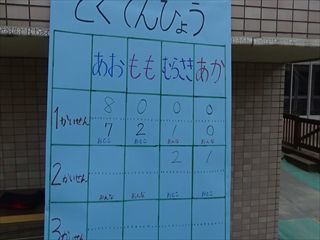 とくてんひょう
あお もも むらさき あか
1かいせん 8 0 0 0
7 2 1 0
おとこ おんな おんな おとこ
2かいせん 2 1
おんな おんな おとこ おとこ
3かいせん